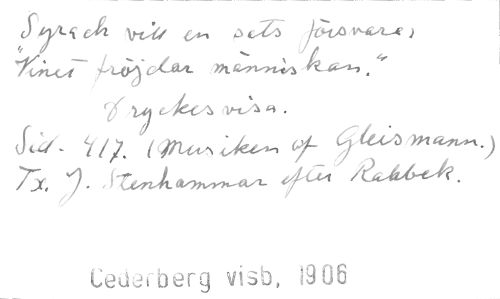 Syrach vill en sats försvara,
"Vinet fröjdar människan."
Dryckesvisa.
Sid. 417. (Musiken af Gleismann.)
Tx. J. Stenhammar efter Rahbek.
Cederberg visb, 1906